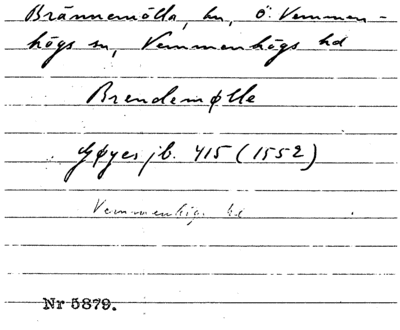 Brännemölla, hn, Ö. Vemmen-
högs sn, Vemmenhögs hd
Brendemølle
Gøyes jb. 415 (1552)
Vemmenhögs hd
Nr 5879.